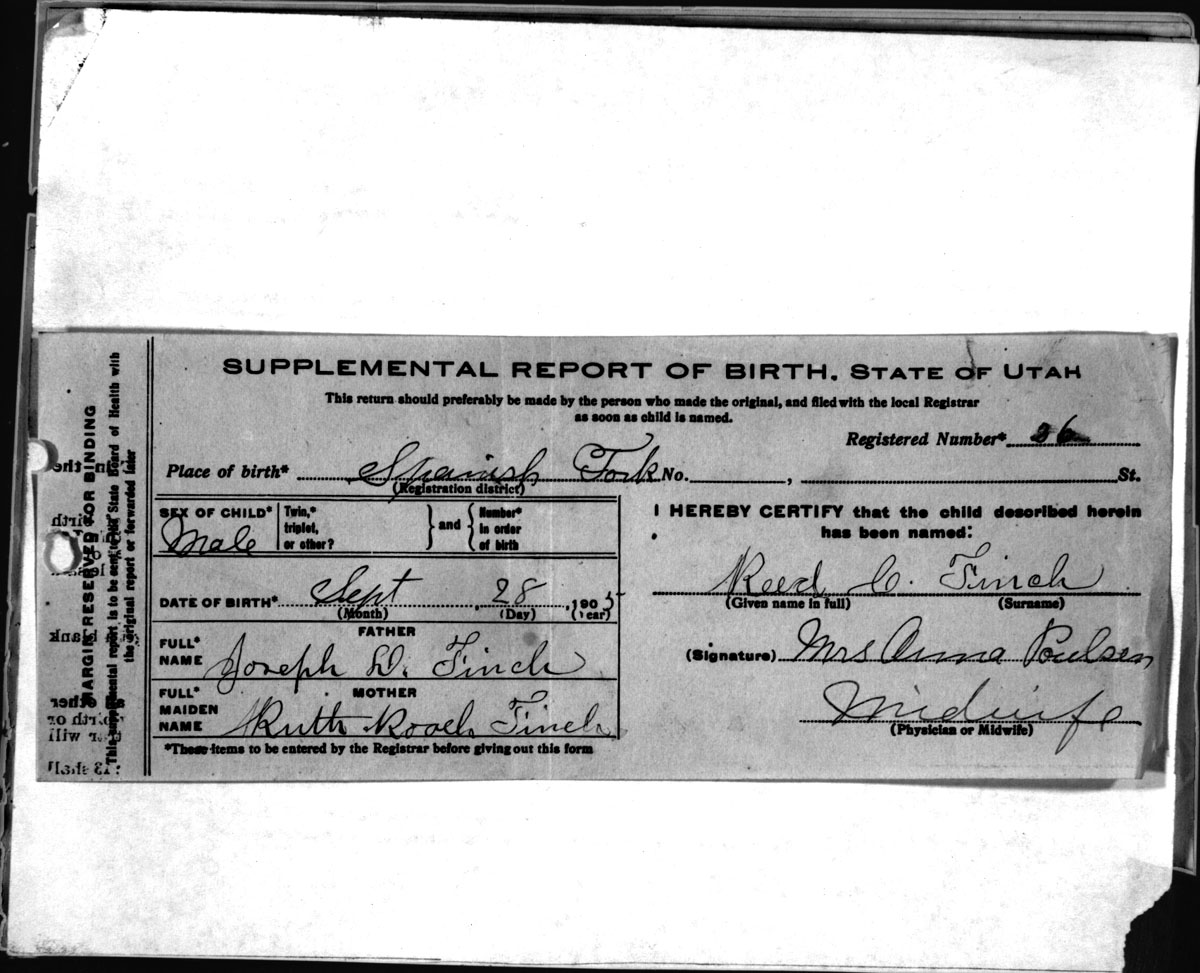 SUPPLEMENTAL REPORT OF BIRTH. STATE OF UTAH
This return should preferably be made by the person who made the original, and filed with the local Registrar
as soon as child is named.
Registered Number* 26
Place of birth* Spanish Fork No. , St.
(Registration district)
SEX OF CHILD* Male
Twin,* triplet, or other?
and
Number* in order of birth
DATE OF BIRTH* Sept , 28 , 1905
(Month) (Day) (Year)
FATHER
FULL* NAME Joseph D. Finch
MOTHER
FULL* MAIDEN NAME Ruth Roach Finch
*These items to be entered by the Registrar before giving out this form
I HEREBY CERTIFY that the child described herein
has been named:
Reed C. Finch
(Given name in full) (Surname)
(Signature) Mrs Anna Poulsen
Midwife
(Physician or Midwife)
MARGIN RESERVED FOR BINDING
This supplemental report is to be sent to the State Board of Health with
the original report or forwarded later